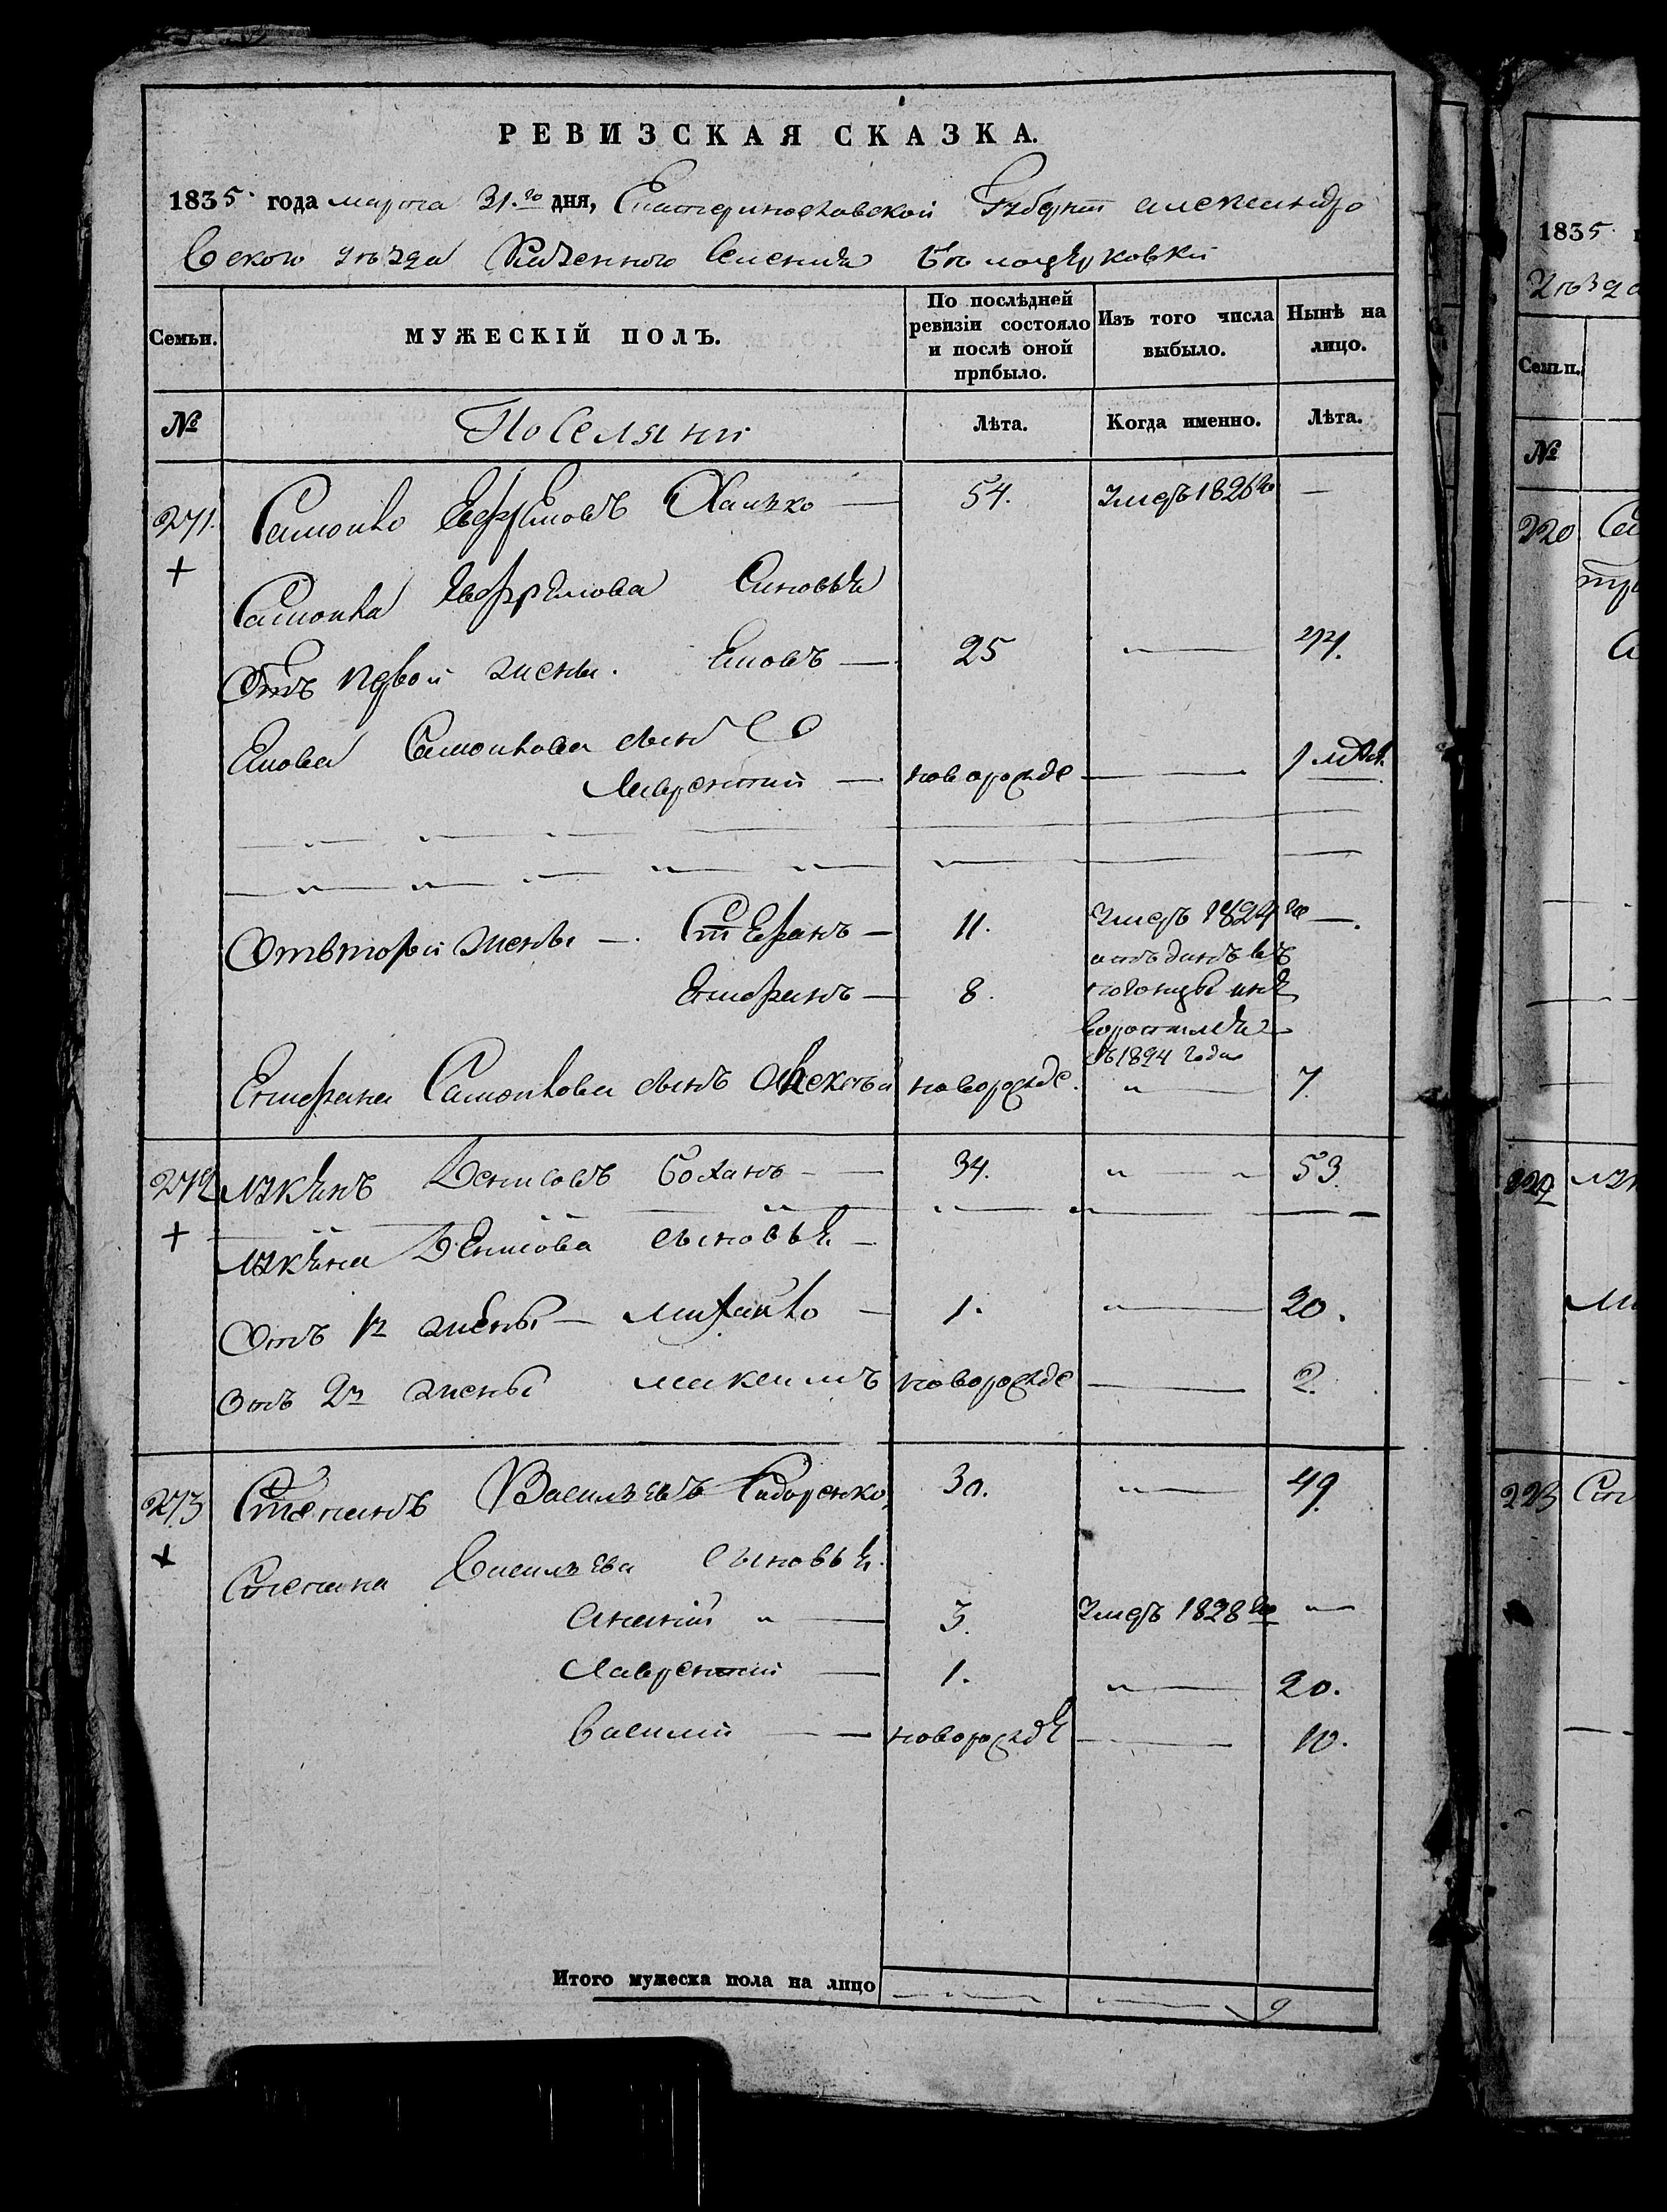 РЕВИЗСКАЯ СКАЗКА.
1835 года марта 31.го дня, Екатеринославской Губерніи александро
вского уезда Казенного Селенія Белоцерковки
Семьи.
МУЖЕСКІЙ ПОЛЪ.
По послѣдней ревизіи состояло и послѣ оной прибыло.
Изъ того числа выбыло.
Нынѣ на лицо.
№
Поселяни
Лѣта.
Когда именно.
Лѣта.
271. Самойло 54. Умеръ 1826го —
+
Самойла Сыновья
Отъ первой жены. Емовъ — 25 44.
Емова Самойлова сынъ
Лаврентий — новорожде 1
Отъ второй жены —. Стефанъ — 11. Умеръ 1824го —.
отъданъ въ
Епифанъ — 8.
въ 1824 года
Епифана Самойлова сынъ Алексей новорожде. 7.
272 Лукянъ Денисовъ Боханъ — 34. 53.
+
Лукяна Денисова сыновья —
Отъ 1й жены — Михайло — 1. 20.
Отъ 2й жены максимъ новорожде 2.
273 Степанъ Васильевъ Сидоренко, 30. 49.
+
Степана Васильева сыновья.
Ананий 3. Умеръ 1828го
Лаврентий — 1. 20.
Василий — новорожде 10.
Итого мужеска пола на лицо
9
1835
Семьи.
№
220
222
223